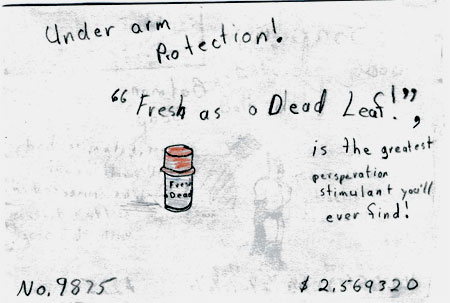 Under arm
Protection!
“Fresh as a Dead Leaf!”,
is the greatest
persperation
stimulant you'll
ever find!
Fresh
Dead
No. 9875
$2.569320